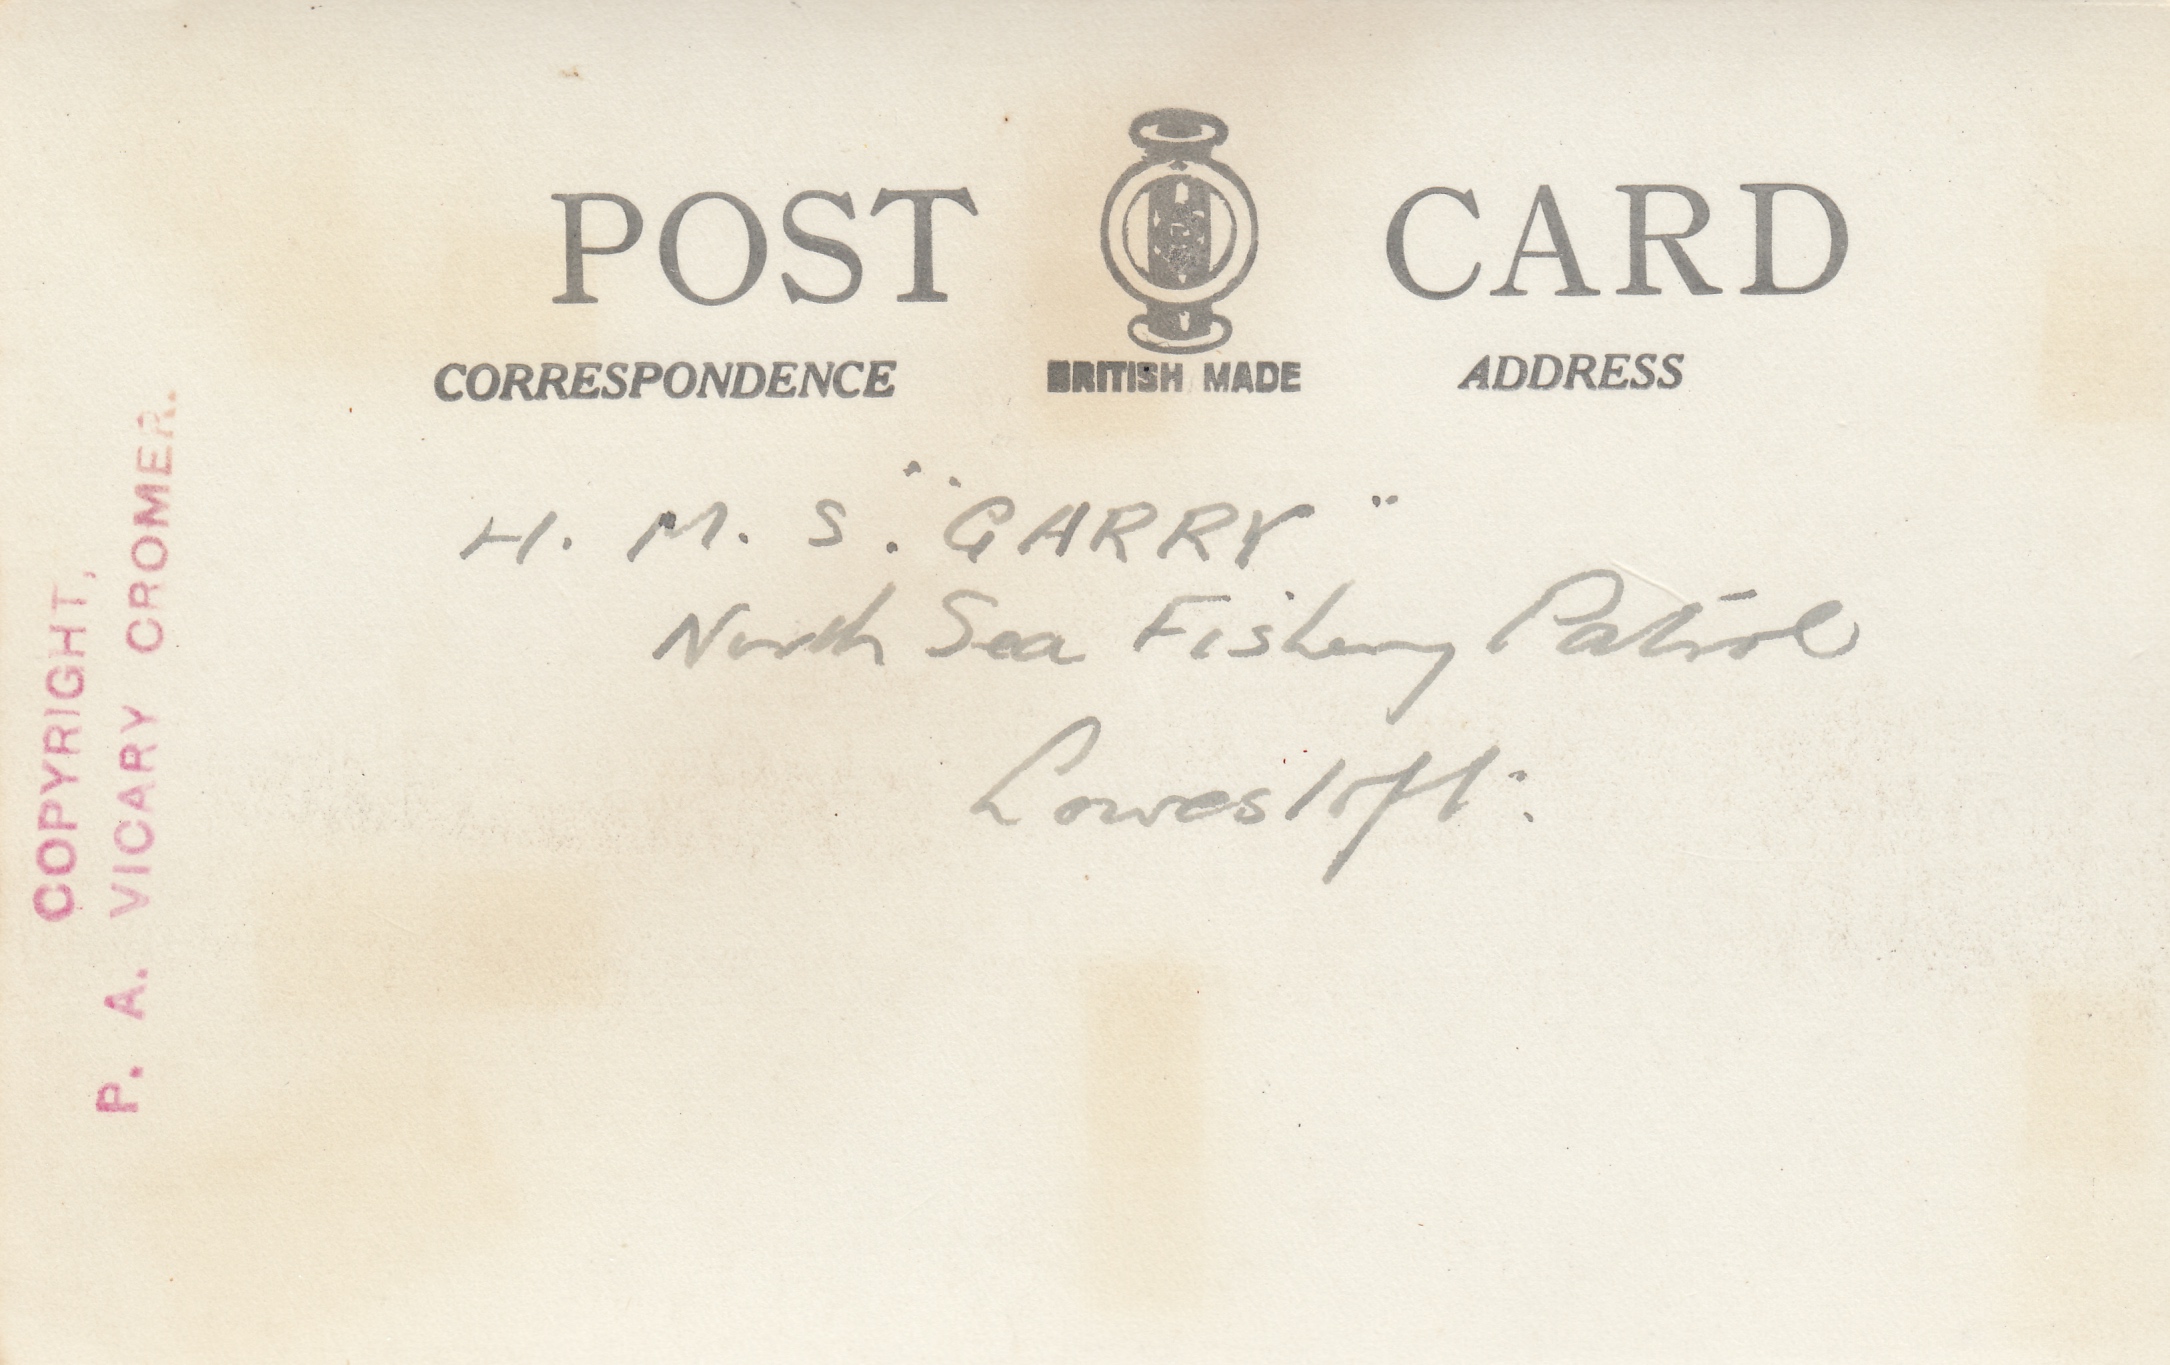 POST CARD
CORRESPONDENCE BRITISH MADE ADDRESS
H. M. S. "GARRY"
North Sea Fishery Patrol
Lowestoft.
COPYRIGHT,
P. A. VICARY CROMER.